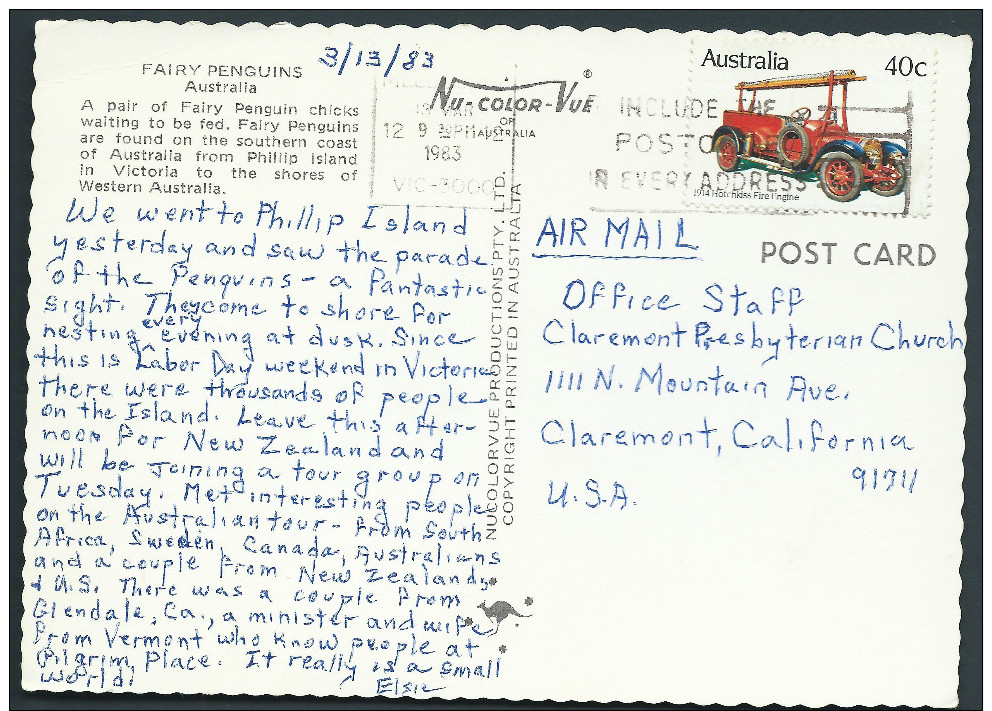 3/13/83
FAIRY PENGUINS
Australia
A pair of Fairy Penguin chicks
waiting to be fed. Fairy Penguins
are found on the southern coast
of Australia from Phillip Island
in Victoria to the shores of
Western Australia.
We went to Phillip Island
yesterday and saw the parade
of the Penguins - a fantastic
sight. They come to shore for
nesting every evening at dusk. Since
this is Labor Day weekend in Victoria
there were thousands of people
on the Island. Leave this after-
noon for New Zealand and
will be joining a tour group on
Tuesday. Met interesting people
on the Australian tour - from South
Africa, Sweden, Canada, Australians
and a couple from New Zealand,
+ U.S. There was a couple from
Glendale, Ca., a minister and wife
from Vermont who know people at
Pilgrim Place. It really is a small
world!
Elsie
NU-COLOR-VUE ®
OF
AUSTRALIA
1983
VIC-3000
NUCOLORVUE PRODUCTIONS PTY. LTD.
COPYRIGHT PRINTED IN AUSTRALIA
INCLUDE THE
POSTCO
IN EVERY ADDRESS
Australia 40c
1914 Hotchkiss Fire Engine
AIR MAIL
POST CARD
Office Staff
Claremont Presbyterian Church
1111 N. Mountain Ave.
Claremont, California
91711
U.S.A.